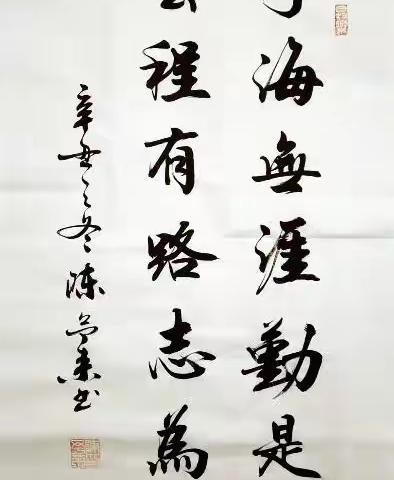 海無涯勤是
程有路志為
辛丑之冬 陳